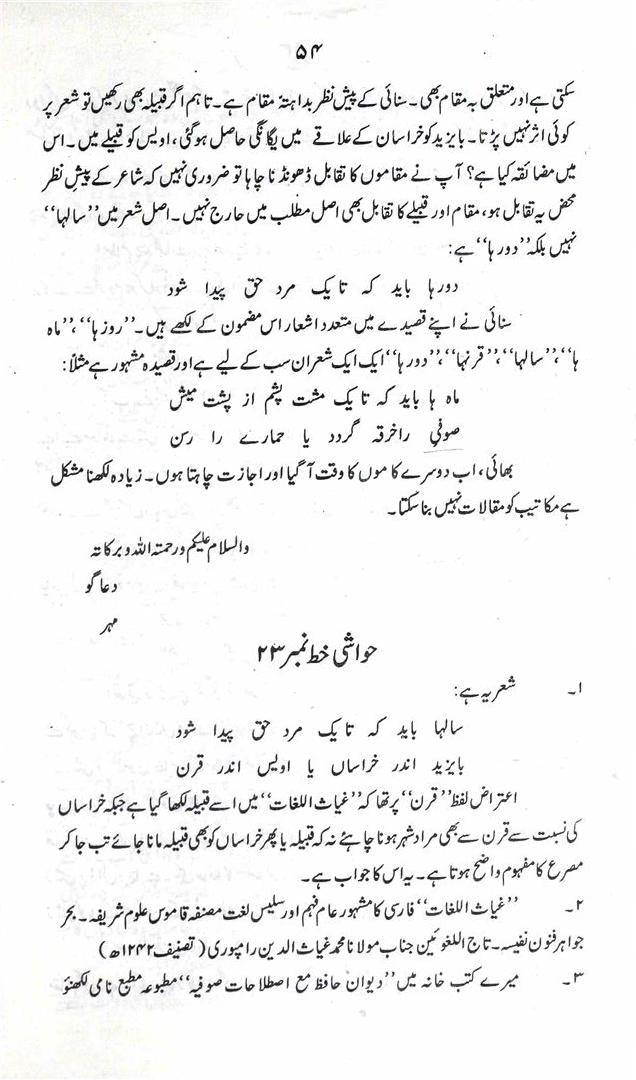 ۵۴
سکتی ہے اور متعلق بہ مقام بھی۔ سنائی کے پیش نظر بداہتہً مقام ہے۔ تاہم اگر قبیلہ بھی رکھیں تو شعر پر
کوئی اثر نہیں پڑتا۔ بایزید کو خراسان کے علاقے میں یگانگی حاصل ہوگئی، اویس کو قبیلے میں۔ اس
میں مضائقہ کیا ہے؟ آپ نے مقاموں کا تقابل ڈھونڈنا چاہا تو ضروری نہیں کہ شاعر کے پیش نظر
محض یہ تقابل ہو، مقام اور قبیلے کا تقابل بھی اصل مطلب میں حارج نہیں۔ اصل شعر میں ”سالہا“
نہیں بلکہ ”دورہا“ ہے:
دورہا باید کہ تا یک مرد حق پیدا شود
سنائی نے اپنے قصیدے میں متعدد اشعار اس مضمون کے لکھے ہیں۔ ”روزہا“، ”ماہ
ہا“، ”سالہا“، ”قرنہا“، ”دورہا“ ایک ایک شعر ان سب کے لیے ہے اور قصیدہ مشہور ہے مثلاً:
ماہ ہا باید کہ تا یک مشت پشم از پشت میش
صوفیِ را خرقہ گردد یا حمارے را رسن
بھائی، اب دوسرے کاموں کا وقت آگیا اور اجازت چاہتا ہوں۔ زیادہ لکھنا مشکل
ہے مکاتیب کو مقالات نہیں بنا سکتا۔
والسلام علیکم ورحمتہ اللہ وبرکاتہ
دعاگو
مہر
حواشی خط نمبر ۲۳
۱۔ شعر یہ ہے:
سالہا باید کہ تا یک مرد حق پیدا شود
بایزید اندر خراساں یا اویس اندر قرن
اعتراض لفظ ”قرن“ پر تھا کہ ”غیاث اللغات“ میں اسے قبیلہ لکھا گیا ہے جبکہ خراساں
کی نسبت سے قرن سے بھی مراد شہر ہونا چاہئے نہ کہ قبیلہ یا پھر خراساں کو بھی قبیلہ مانا جائے تب جا کر
مصرع کا مفہوم واضح ہوتا ہے۔ یہ اس کا جواب ہے۔
۲۔ ”غیاث اللغات“ فارسی کا مشہور عام فہم اور سلیس لغت مصنفہ قاموس علوم شریفہ۔ بحر
جواہر فنون نفیسہ۔ تاج اللغوئین جناب مولانا محمد غیاث الدین رامپوری (تصنیف ۱۲۴۲ھ)
۳۔ میرے کتب خانہ میں ”دیوان حافظ مع اصطلاحات صوفیہ“ مطبوعہ مطبع نامی لکھنؤ